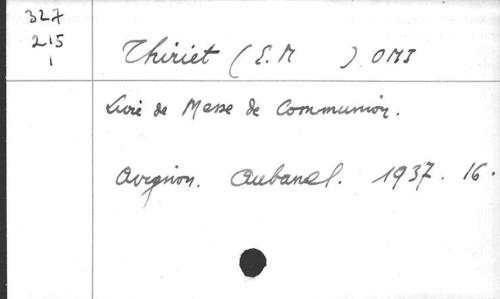 327
215
1
Thiriet (E.M ) OMI
Livre de Messe de Communion.
Avignon. Aubanel. 1937. 16.